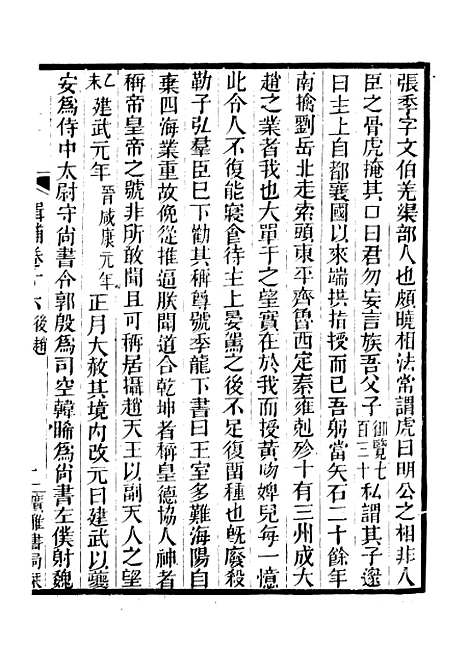 張季字文伯羌渠部人也頗曉相法常謂虎曰明公之相非人
臣之骨虎掩其口曰君勿妄言族吾父子御覽七百三十私謂其子邃
曰主上自都襄國以來端拱指授而已吾躬當矢石二十餘年
南擒劉岳北走索頭東平齊魯西定秦雍剋殄十有三州成大
趙之業者我也大單于之望實在於我而授黃吻婢兒每一憶
此令人不復能寢食待主上晏駕之後不足復畱種也旣廢殺
勒子弘羣臣巳下勸其稱尊號季龍下書曰王室多難海陽自
棄四海業重故俛從推逼朕聞道合乾坤者稱皇德協人神者
稱帝皇帝之號非所敢聞且可稱居攝趙天王以副天人之望
乙未建武元年晉咸康元年正月大赦其境內改元曰建武以夔
安爲侍中太尉守尙書令郭殷爲司空韓晞爲尙書左僕射魏
輯補卷十六後趙
廣雅書局栞